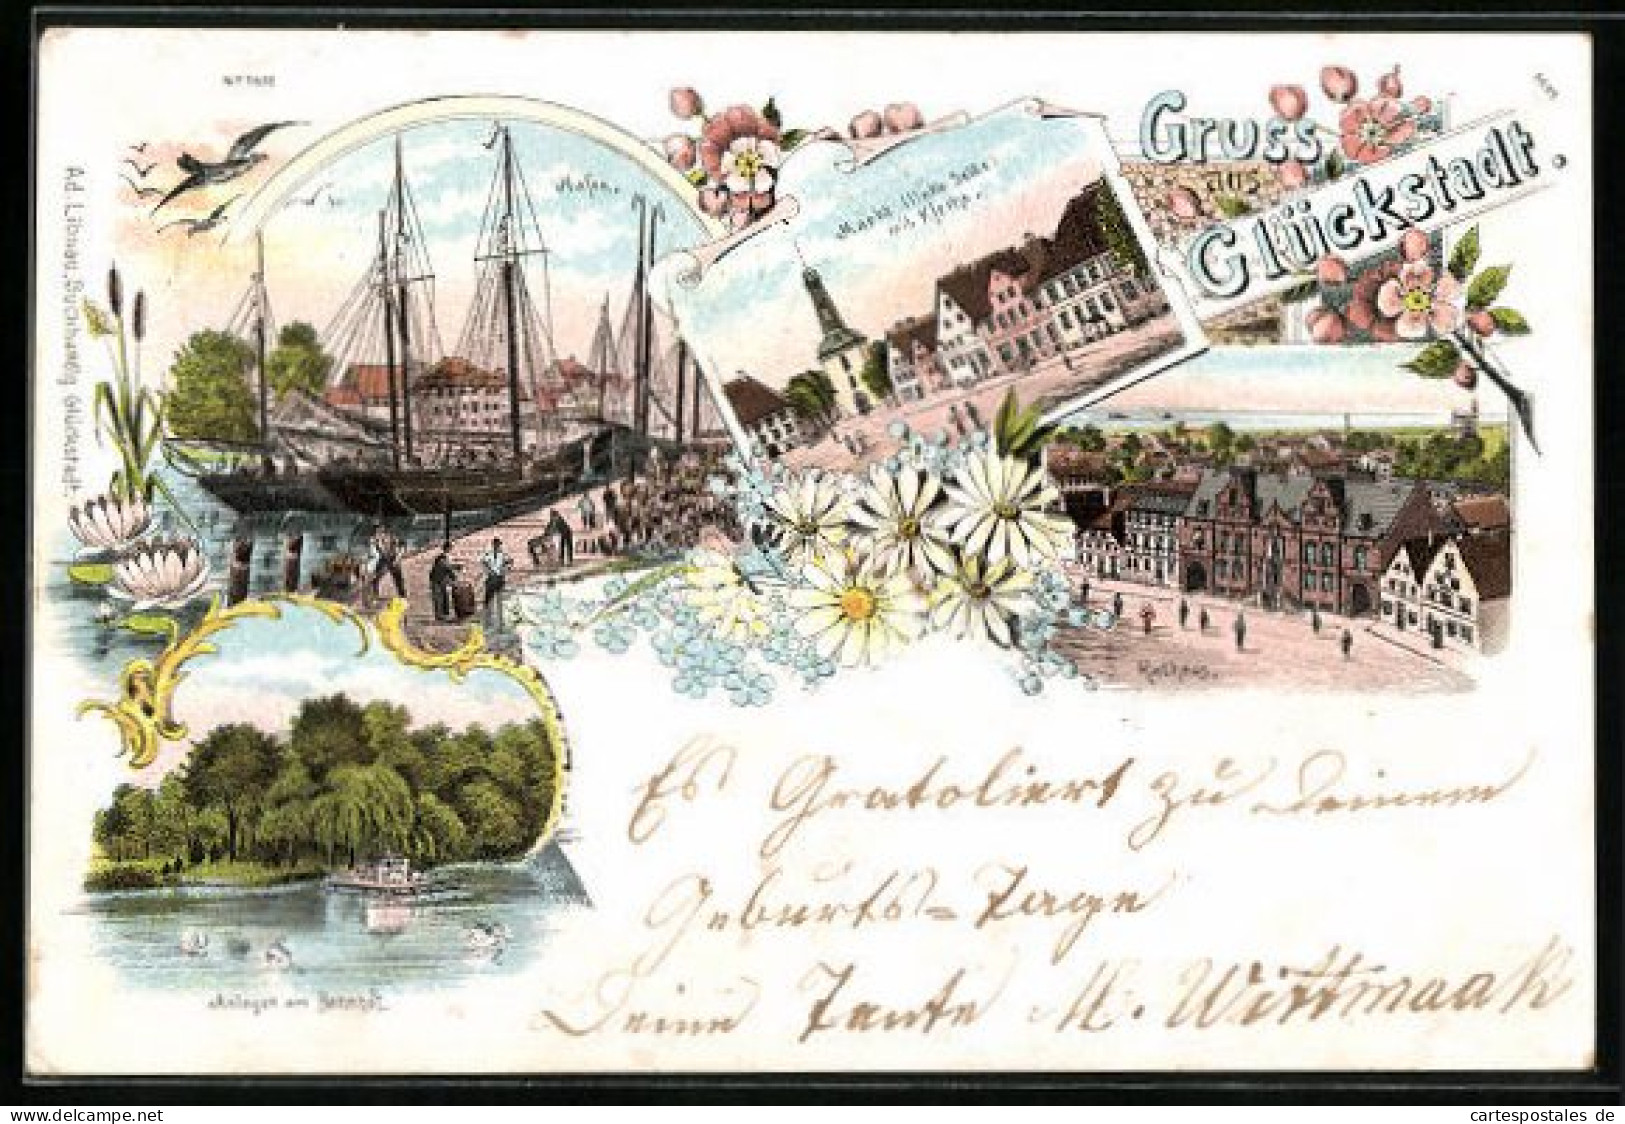 Gruss
aus
Glückstadt.
Hafen.
Markt
mit Kirche.
Rathaus.
Anlagen am Bahnhof.
Ad. Libnau, Buchhandlg Glückstadt.
Es Gratoliert zu Deinem
Geburts=Tage
Deine Tante M. Wittmaak
www.cartespostales.com
cartespostales.de